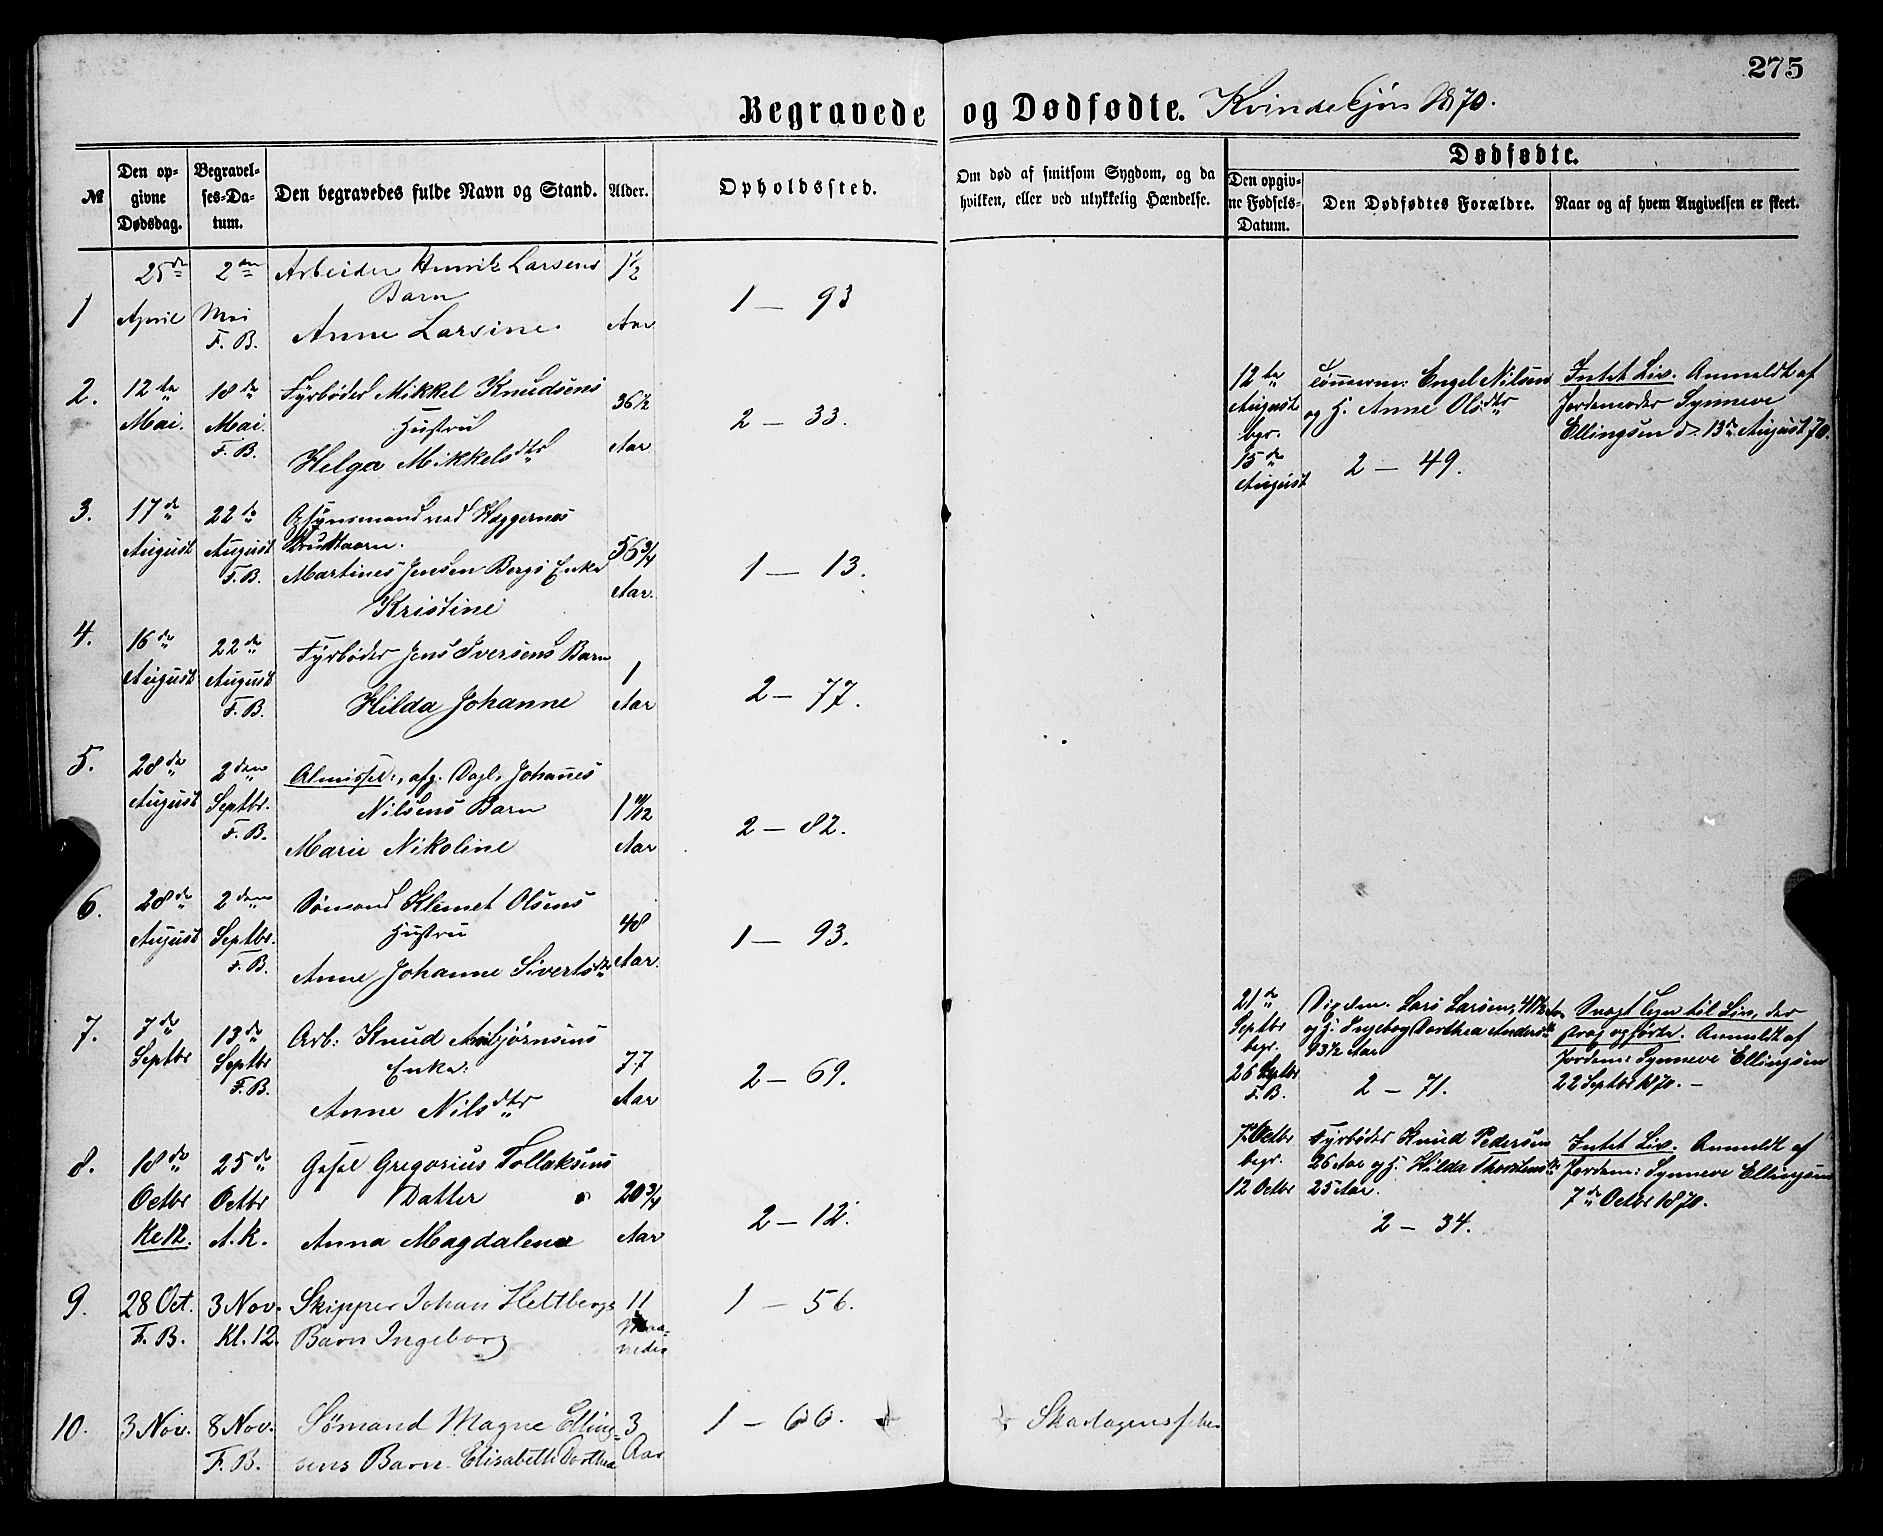 275
Begravede og Dødfødte. Kvindekjøn 1870.
№
Den opgivne Dødsdag.
Begravelses-Datum.
Den begravedes fulde Navn og Stand.
Alder.
Opholdssted.
Om død af smitsom Sygdom, og da hvilken, eller ved ulykkelig Hændelse.
Dødfødte.
Den opgivne Fødsels-Datum.
Den Dødfødtes Forældre.
Naar og af hvem Angivelsen er skeet.
1
25de April
2den Mai F. B.
Arbeider Henrik Larsens
Barn
Anne Larsine.
1½ Aar
1 — 93
2.
12te Mai.
18de Mai. F. B.
Fyrbøder Mikkel Knudsens
Hustru
Helga Mikkelsdtr
36½ Aar
2 — 33.
12te August bgr. 15de August
Engel Nilsen
og H. Anne Olsdtr
2 — 49.
Intet Liv. Anmeldt af
Jordemoder Synneve
Ellingsen d. 13de August 70.
3.
17de August
22de August F. B.
Opsynsmand ved Heggernes
Martines Jensen Bergs Enke
Kristine
56¾ Aar.
1 — 13.
4.
16de August
22de August F. B.
Fyrbøder Jens Iversens Barn
Hilda Johanne
1 Aar
2 — 77.
5.
28de August
2den Septbr. F. B.
Almissel., afg. Dagl. Johanes
Nilsens Barn
Marie Nikoline
1 10/12 Aar
2 — 82.
6.
28de August
2den Septbr. F. B.
Sømand Klemet Olsens
Hustru
Anne Johanne Sivertsdtr
48 Aar.
1 — 93.
7.
7de Septbr
13de Septbr F. B.
Arb: Knud Ambjørnsens
Enke:
Anne Nilsdtr
77 Aar
2 — 69.
21de Septbr begr. 26 Septbr F. B.
Lars Larsen, 41½ Aar
og H. Ingeborg Dorthea Andersdtr
43½ Aar
2 — 71.
Svagt Tegn til Liv, der
strax ophørte. Anmeldt af
Jordem: Synneve Ellingsen
22 Septbr 1870. —
8.
18de Octbr Kl 12.
25de Octbr A. K.
Gesel Gregorius Tollaksens
Datter
Anna Magdalena
20¾ Aar
2 — 12.
7. Octbr begr. 12 Octbr
Fyrbøder Knud Pedersen
26 Aar og H. Hilda Thorstensdtr
25 Aar.
2 — 34.
Intet Liv. Anmeldt af
Jordem: Synneve Ellingsen
7de Octbr 1870.
9.
28 Oct. F. B.
3 Nov. Kl. 12.
Skipper Johan Heltbergs
Barn Ingeborg
11 Maaneder
1 — 56.
10.
3 Nov.
8 Nov. F. B.
Sømand Magne Ellingsens Barn Elisabeth Dorthea
3 Aar
1 — 66. +
+ Skarlagensfeber